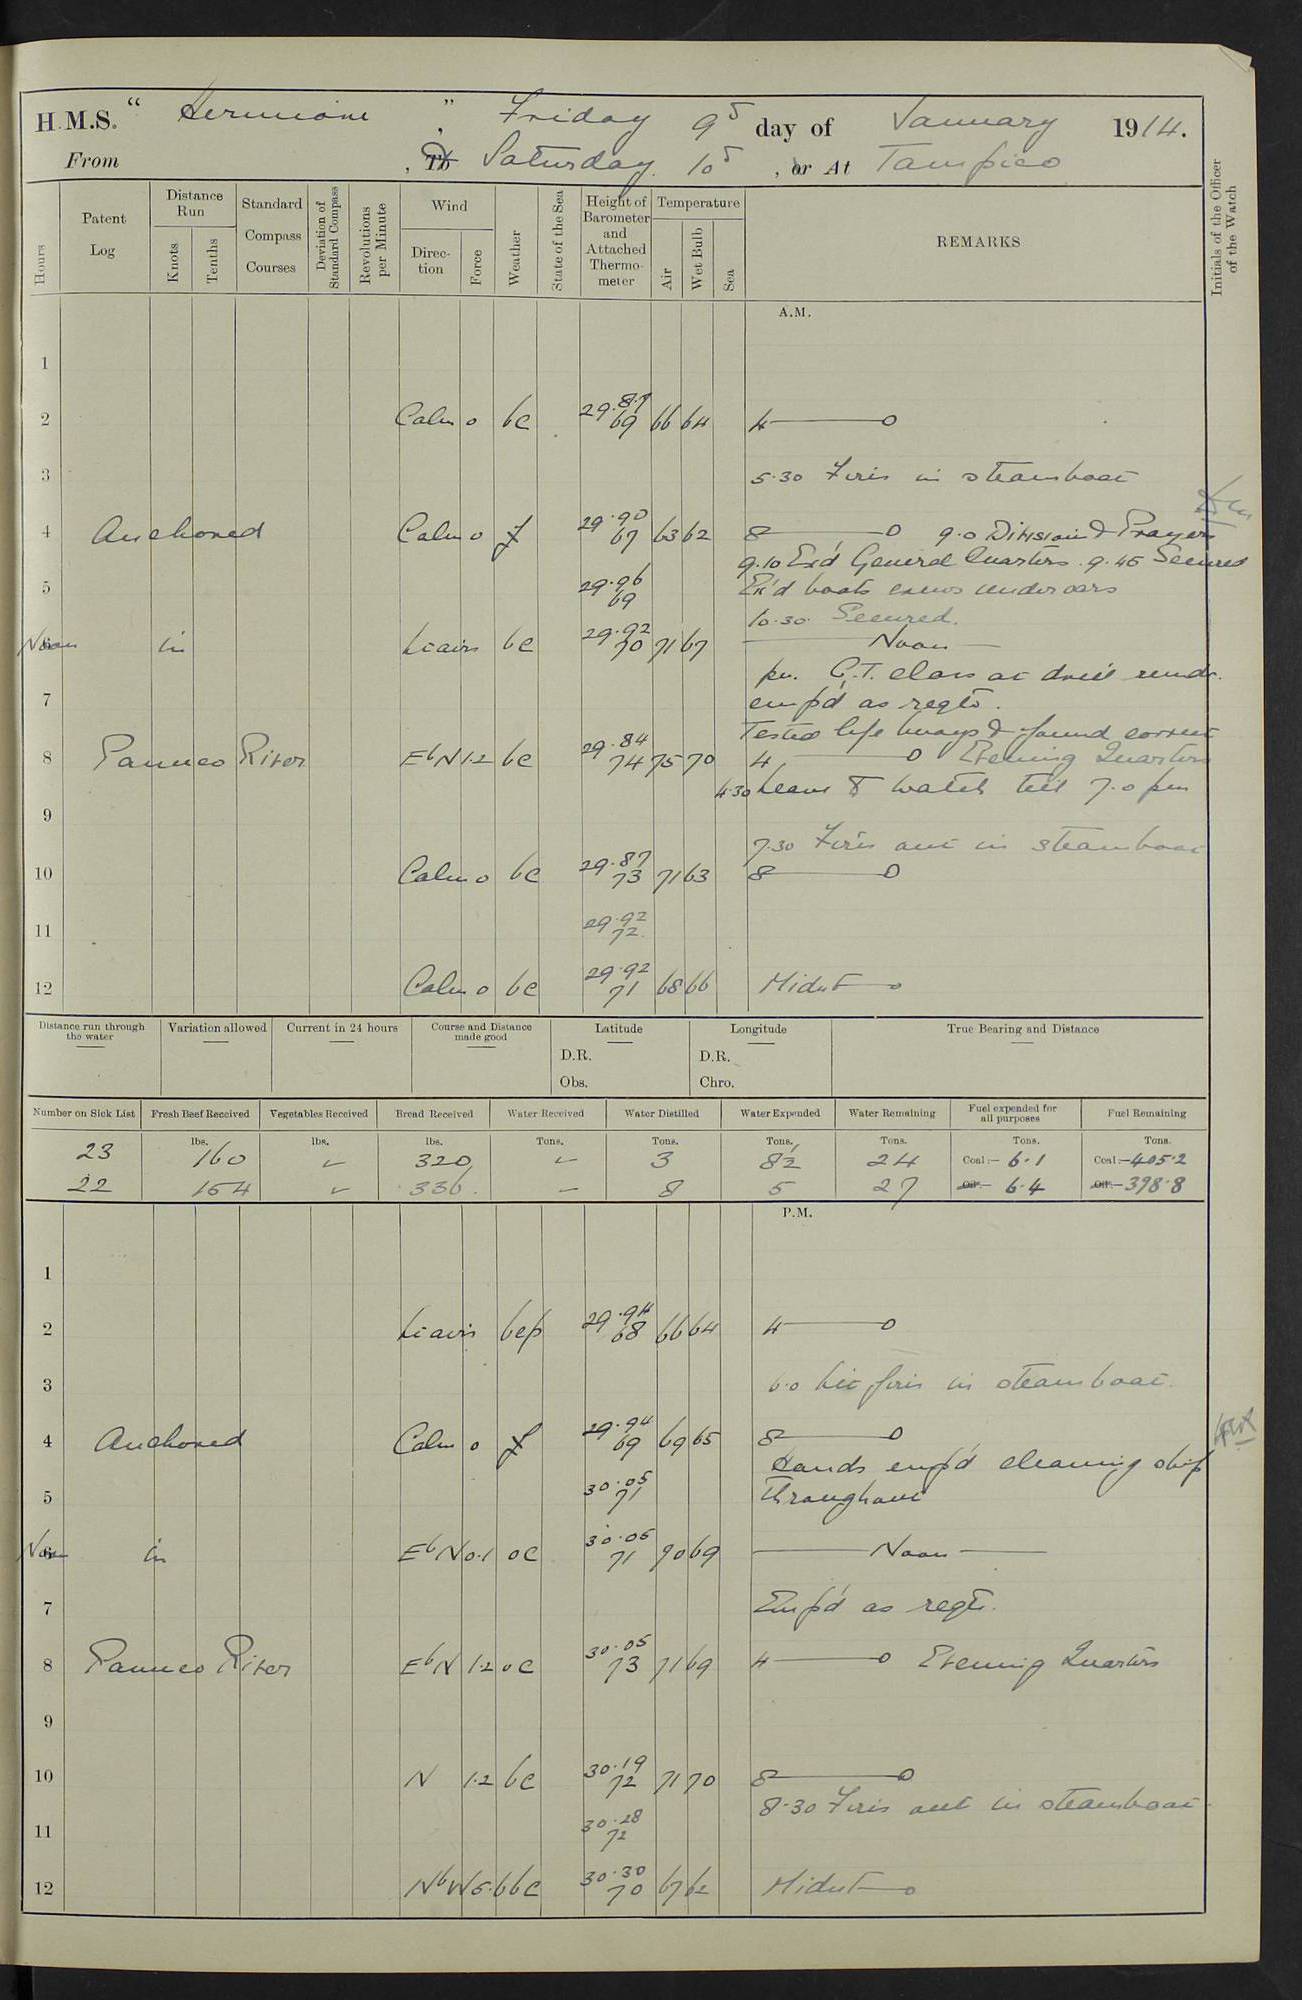 H.M.S. “ Hermione ” , Friday 9th day of January 1914.
From , To Saturday 10th , or At Tampico
Hours
Patent Log
Distance Run
Knots
Tenths
Standard Compass Courses
Deviation of Standard Compass
Revolutions per Minute
Wind
Direction
Force
Weather
State of the Sea
Height of Barometer and Attached Thermometer
Temperature
Air
Wet Bulb
Sea
REMARKS
Initials of the Officer of the Watch
A.M.
1
2 Calm 0 bc 29.87 69 66 64 4
3 5.30 Fires in steamboat
4 Anchored Calm 0 f 29.90 67 63 62 8 9.0 Divisions & Prayers
9.10 Ex'd General Quarters. 9.45 Secured
5 29.96 69 Ex'd boats crews under oars
10.30. Secured.
Noon in Lt airs bc 29.92 70 71 67 Noon
pm. G.T. class at drill remdr.
7 emp'd as reqte.
Tested life buoys & found correct
8 Panuco River EbN 1.2 bc 29.84 74 75 70 4 Evening Quarters
4.30 Leave to watch till 7.0 pm
9
7.30 Fires out in steamboat
10 Calm 0 bc 29.87 73 71 63 8
11 29.92 72
12 Calm 0 bc 29.92 71 68 66 Midnt
Distance run through the water
Variation allowed
Current in 24 hours
Course and Distance made good
Latitude
D.R.
Obs.
Longitude
D.R.
Chro.
True Bearing and Distance
Number on Sick List
Fresh Beef Received
Vegetables Received
Bread Received
Water Received
Water Distilled
Water Expended
Water Remaining
Fuel expended for all purposes
Fuel Remaining
lbs. lbs. lbs. Tons. Tons. Tons. Tons. Tons. Tons.
23 160 320 3 8½ 24 Coal:- 6.1 Coal:- 405.2
22 154 336 8 5 27 Oil:- 6.4 Oil:- 398.8
P.M.
1
2 Lt airs bcp 29.94 68 66 64 4
3 6.0 Lit fires in steamboat.
4 Anchored Calm 0 f 29.94 69 69 65 8
Hands emp'd cleaning ship
5 30.05 71 throughout
Noon in EbN 0.1 oc 30.06 71 70 69 Noon
7 Emp'd as reqte.
8 Panuco River EbN 1.2 oc 30.05 73 71 69 4 Evening Quarters
9
10 N 1.2 bc 30.19 72 71 70 8
8.30 Fires out in steamboat
11 30.28 72
12 NbW 5.6 bc 30.30 70 67 62 Midnt